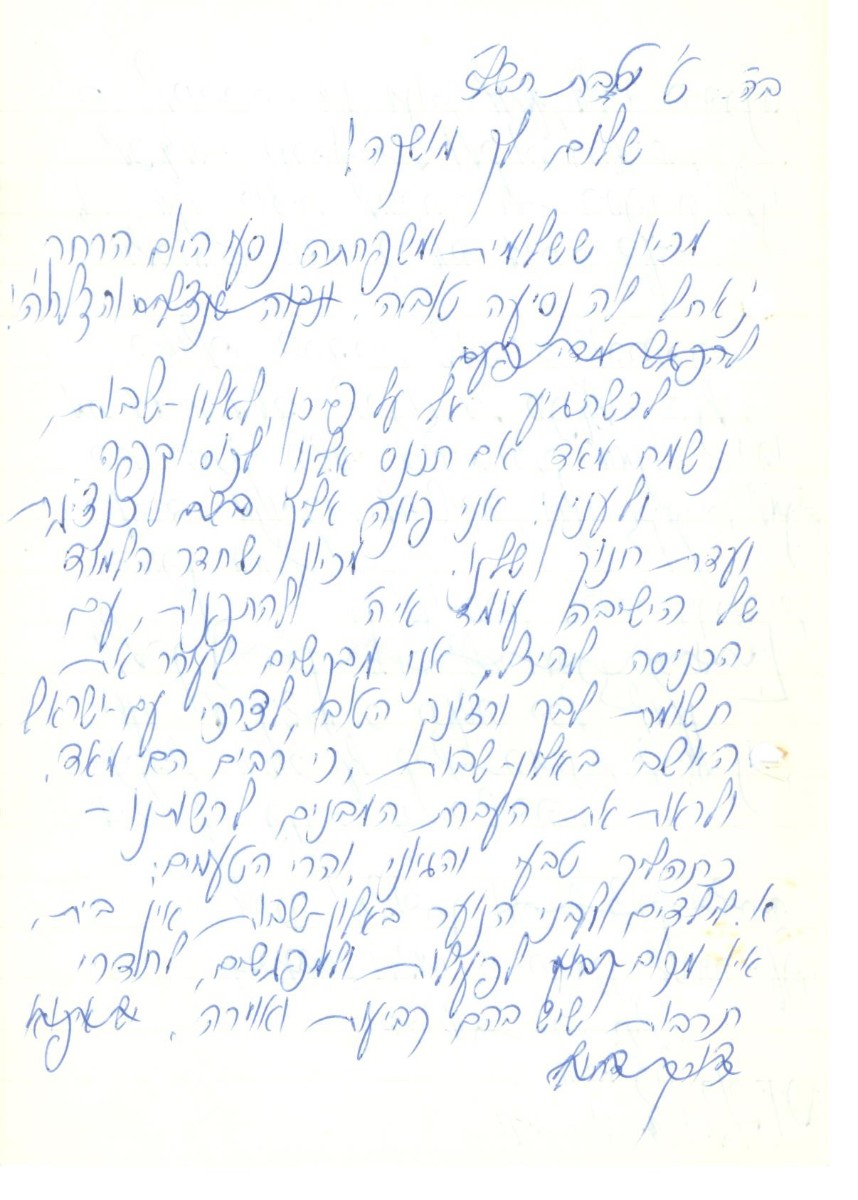 ב"ה ט' טבת תשל"
שלום לך מושקה!
מכיון ששלומית ומשפחתה נסעו היום הרחק
אחל לה נסיעה טובה. והצלחה!
לכשתגיע אל על פיכן לאלון-שבות,
נשמח מאד אם תכנס אלינו לכוס קפה
ולענין: אני פונה אליך בשם
ועדת חנוך שלנו. מכיון שחדר הלמוד
של הישיבה עומד אי"ה להתפנות, עם
הכניסה להיכל, אנו מבקשים לעורר את
תשומת לבך ורצונך הטוב לצרכי עם-ישראל
היושב באלון-שבות, כי רבים הם מאד.
ולראות את העברת המבנים לרשותנו -
כתהליך טבעי והגיוני, והרי הטעמים:
א. לילדים ולבני הנוער באלון-שבות אין בית,
אין מקום קבוע לפעולות ולמפגשים, לחדרי
תרבות שיש בהם קביעות ואוירה.